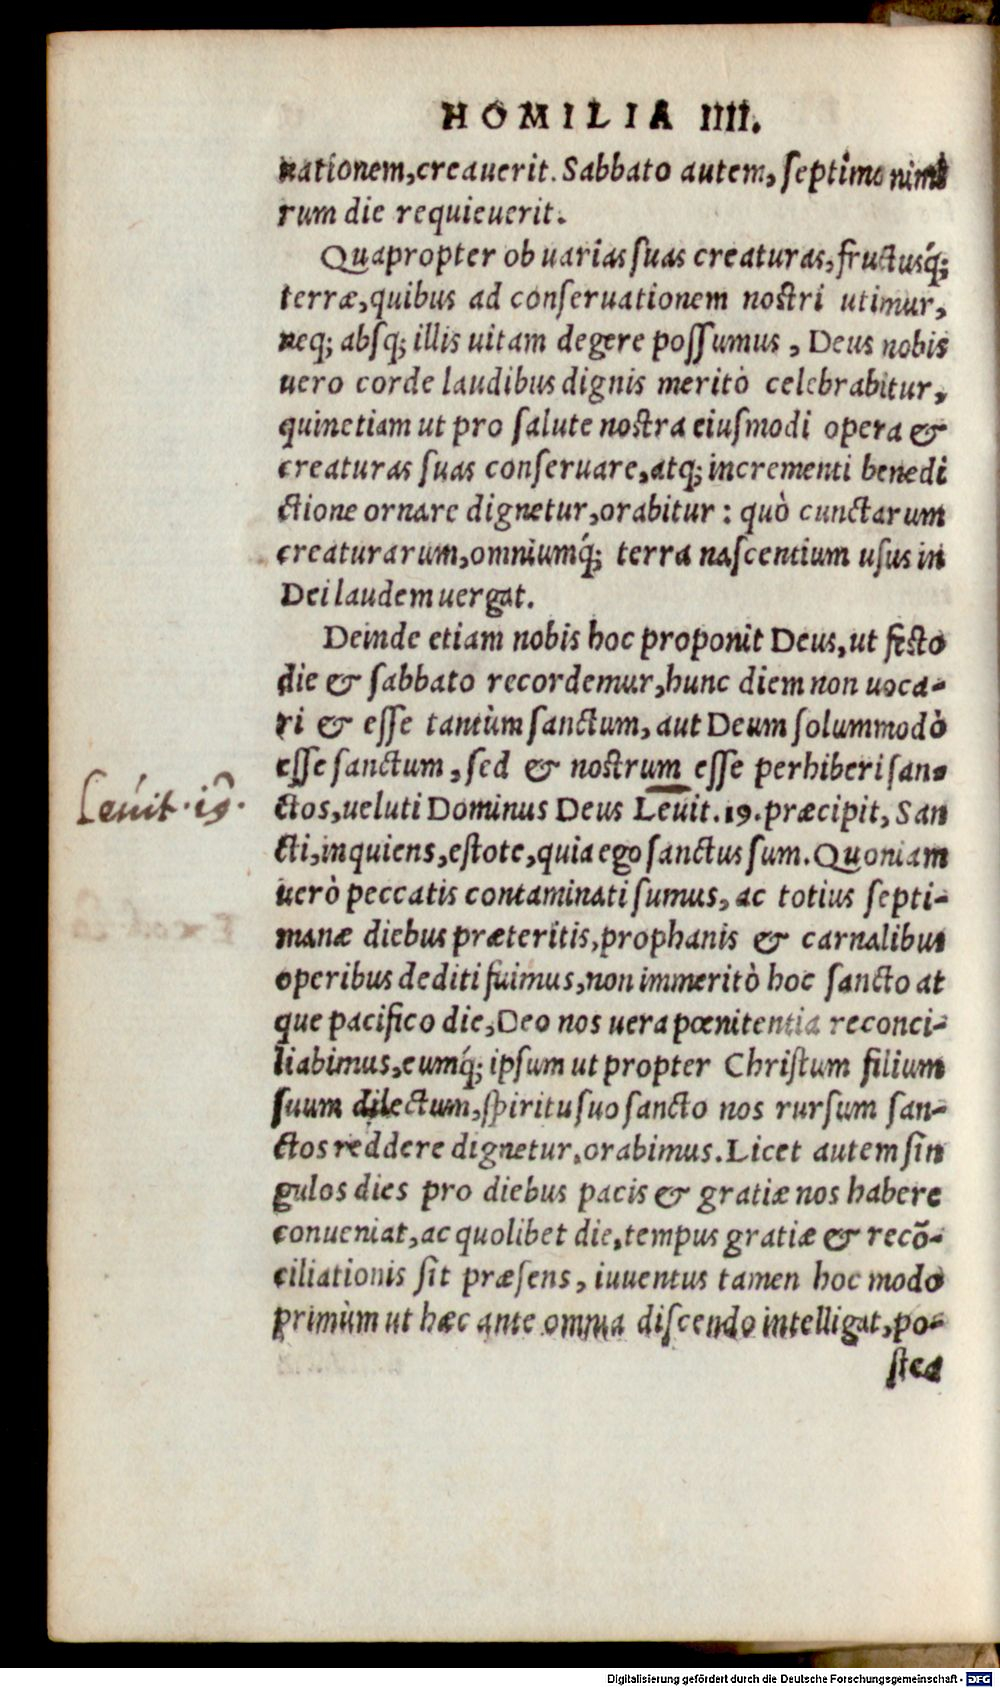 HOMILIA IIII.
nationem, creauerit. Sabbato autem, ſeptimo nimi
rum die requieuerit.
Quapropter ob uarias ſuas creaturas, fructusq́;
terræ, quibus ad conſeruationem noſtri utimur,
neq; abſq; illis uitam degere poſſumus, Deus nobis
uero corde laudibus dignis meritò celebrabitur,
quinetiam ut pro ſalute noſtra eiuſmodi opera &
creaturas ſuas conſeruare, atq; incrementi benedi
ctione ornare dignetur, orabitur: quò cunctarum
creaturarum, omniumq́; terra naſcentium uſus in
Dei laudem uergat.
Deinde etiam nobis hoc proponit Deus, ut feſto
die & ſabbato recordemur, hunc diem non uoca-
ri & eſſe tantùm ſanctum, aut Deum ſolummodò
eſſe ſanctum, ſed & noſtrum eſſe perhiberi ſan-
ctos, ueluti Dominus Deus Leuit. 19. præcipit, San
cti, inquiens, eſtote, quia ego ſanctus ſum. Quoniam
uerò peccatis contaminati ſumus, ac totius ſepti-
manæ diebus præteritis, prophanis & carnalibus
operibus dediti fuimus, non immeritò hoc ſancto at
que pacifico die, Deo nos uera pœnitentia reconci-
liabimus, eumq́; ipſum ut propter Chriſtum filium
ſuum dilectum, ſpiritu ſuo ſancto nos rurſum ſan-
ctos reddere dignetur, orabimus. Licet autem ſin
gulos dies pro diebus pacis & gratiæ nos habere
conueniat, ac quolibet die, tempus gratiæ & recõ-
ciliationis ſit præſens, iuuentus tamen hoc modo
primùm ut hæc ante omnia diſcendo intelligat, po-
ſtea
Leuit. 19.
Digitalisierung gefördert durch die Deutsche Forschungsgemeinschaft - DFG